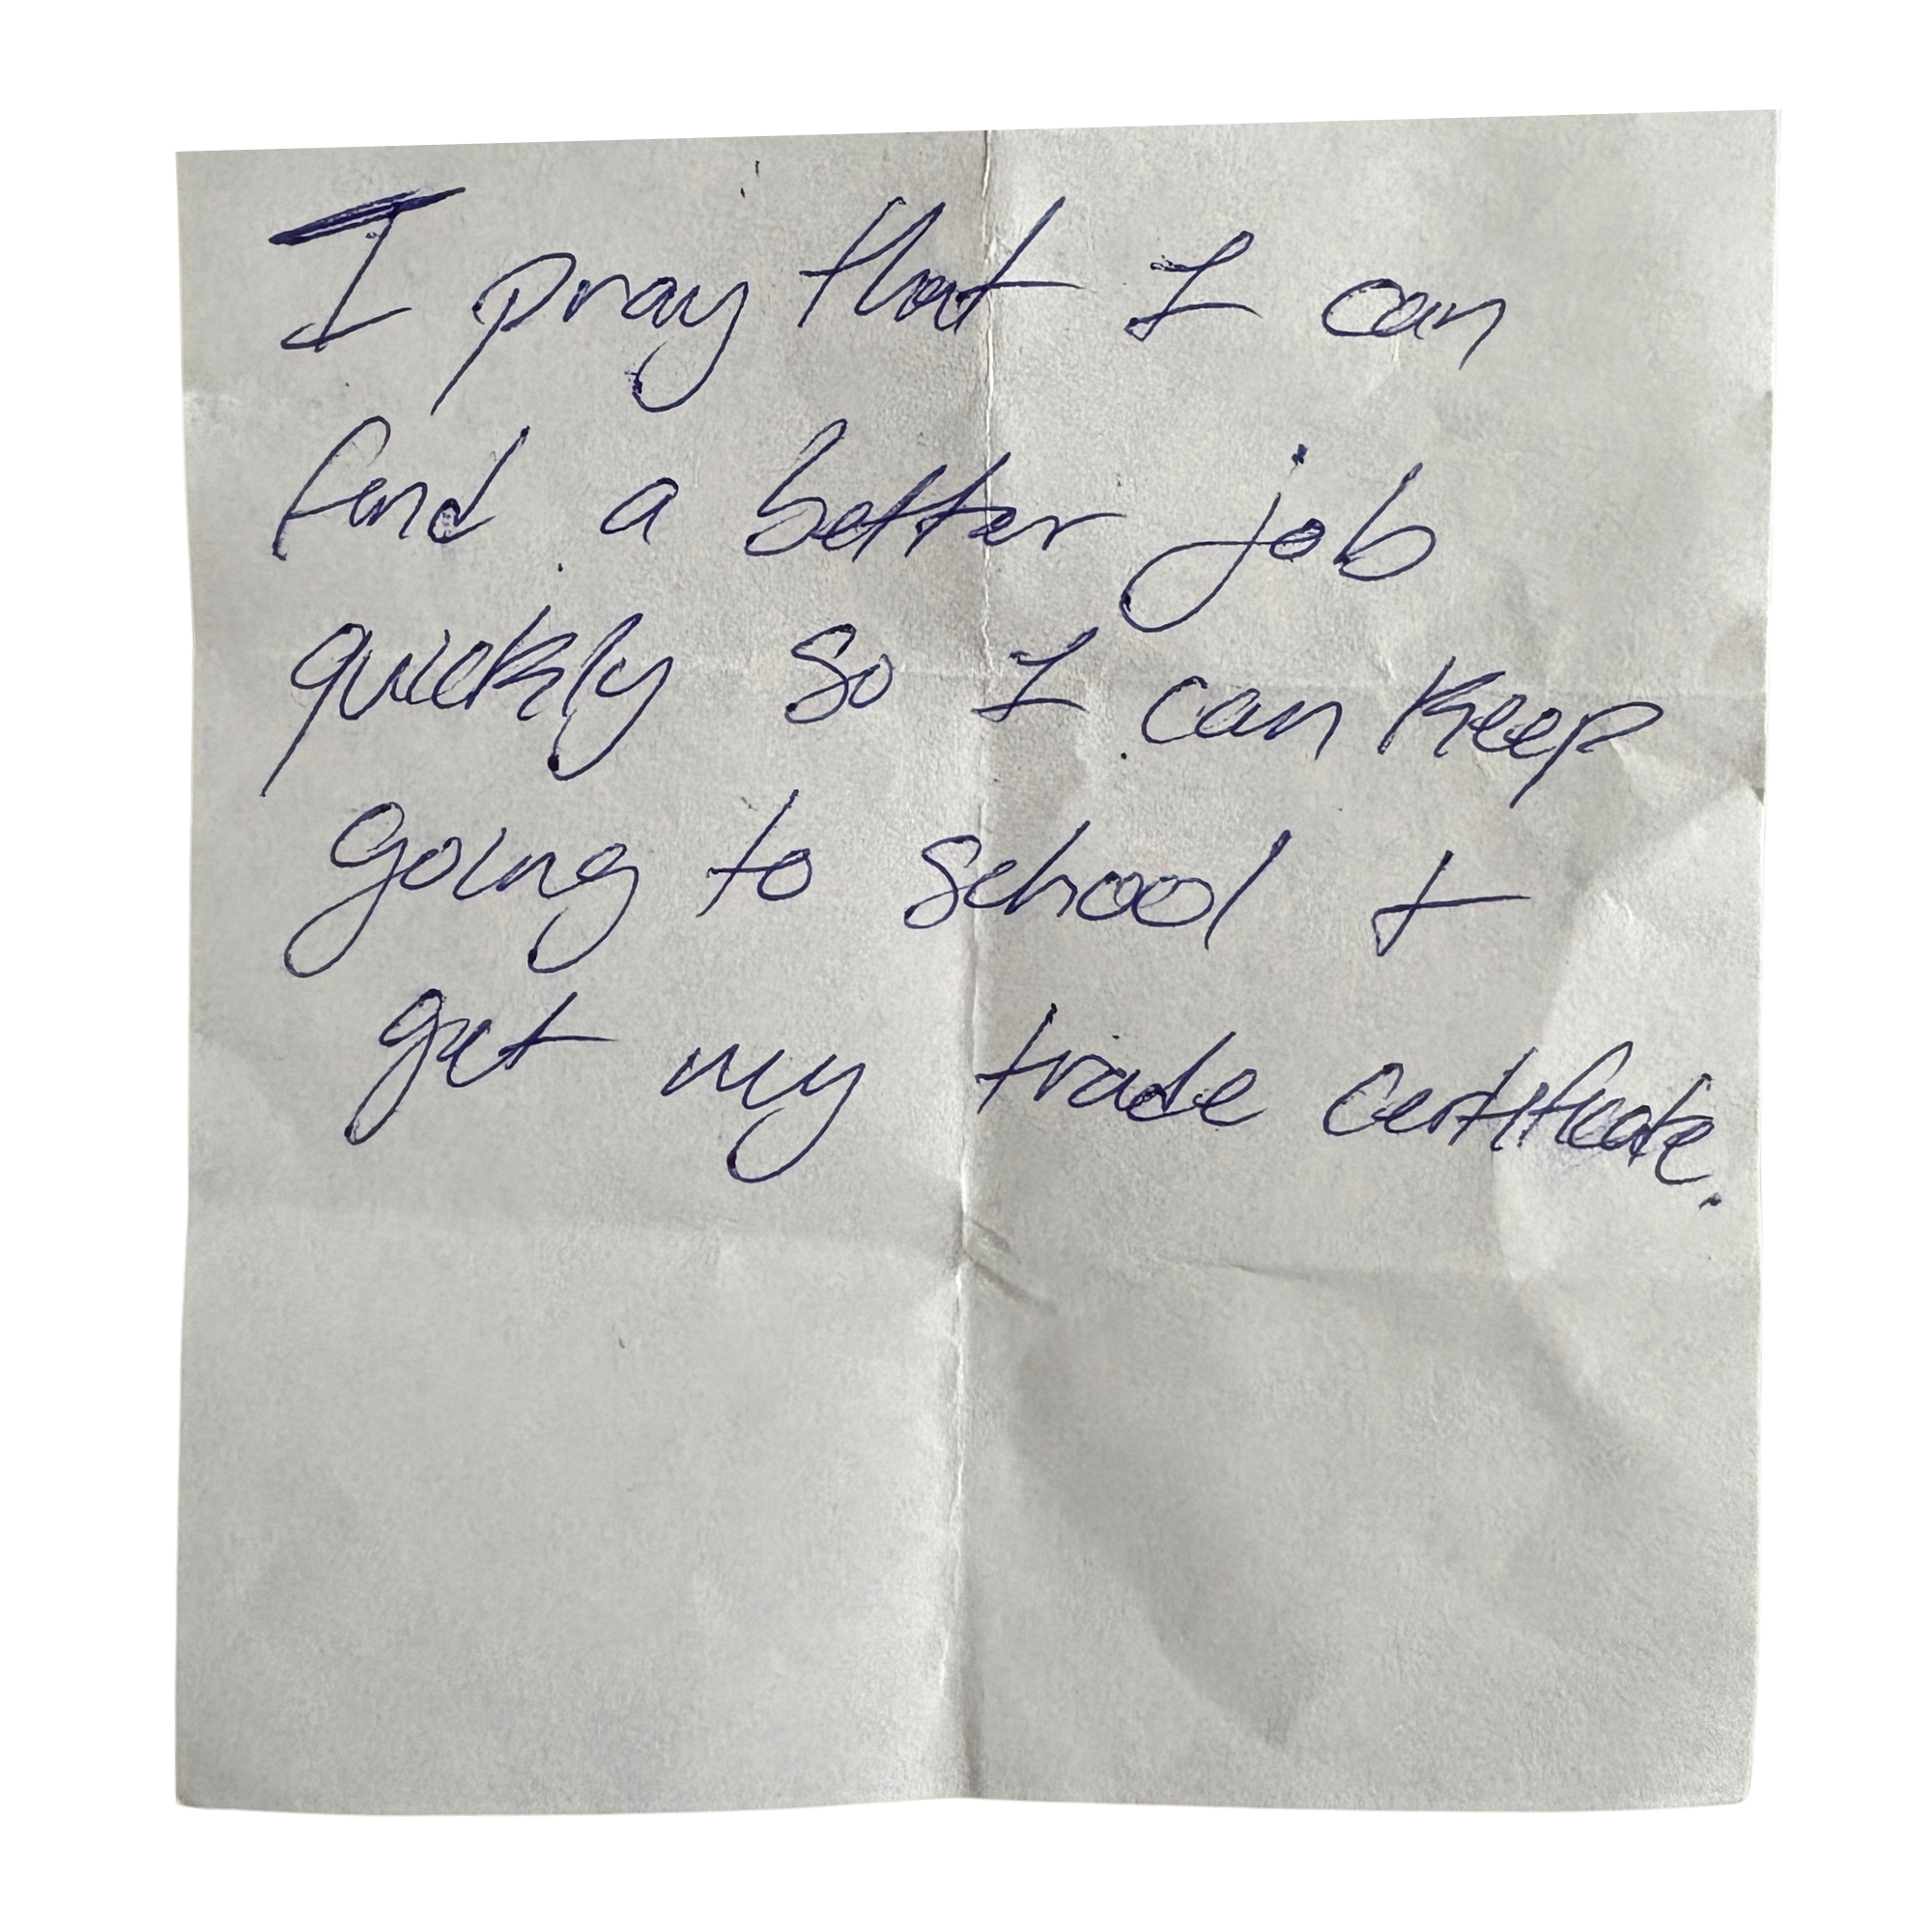 I pray that I can
find a better job
quickly so I can keep
going to school +
get my trade certificate.